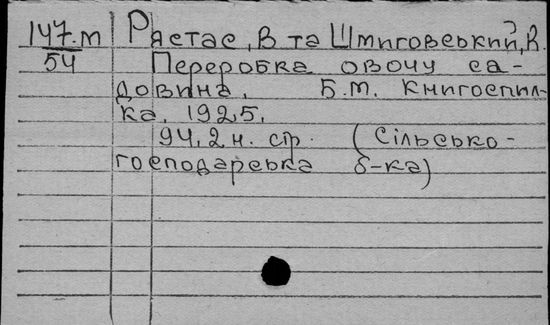 147.м Рястас, В та Шмиговський, К.
54 Переробка овочу са-
довина. Б.М. Книгоспил-
ка, 1925.
94, 2 н. стр. (Сільсько-
господарська б-ка)